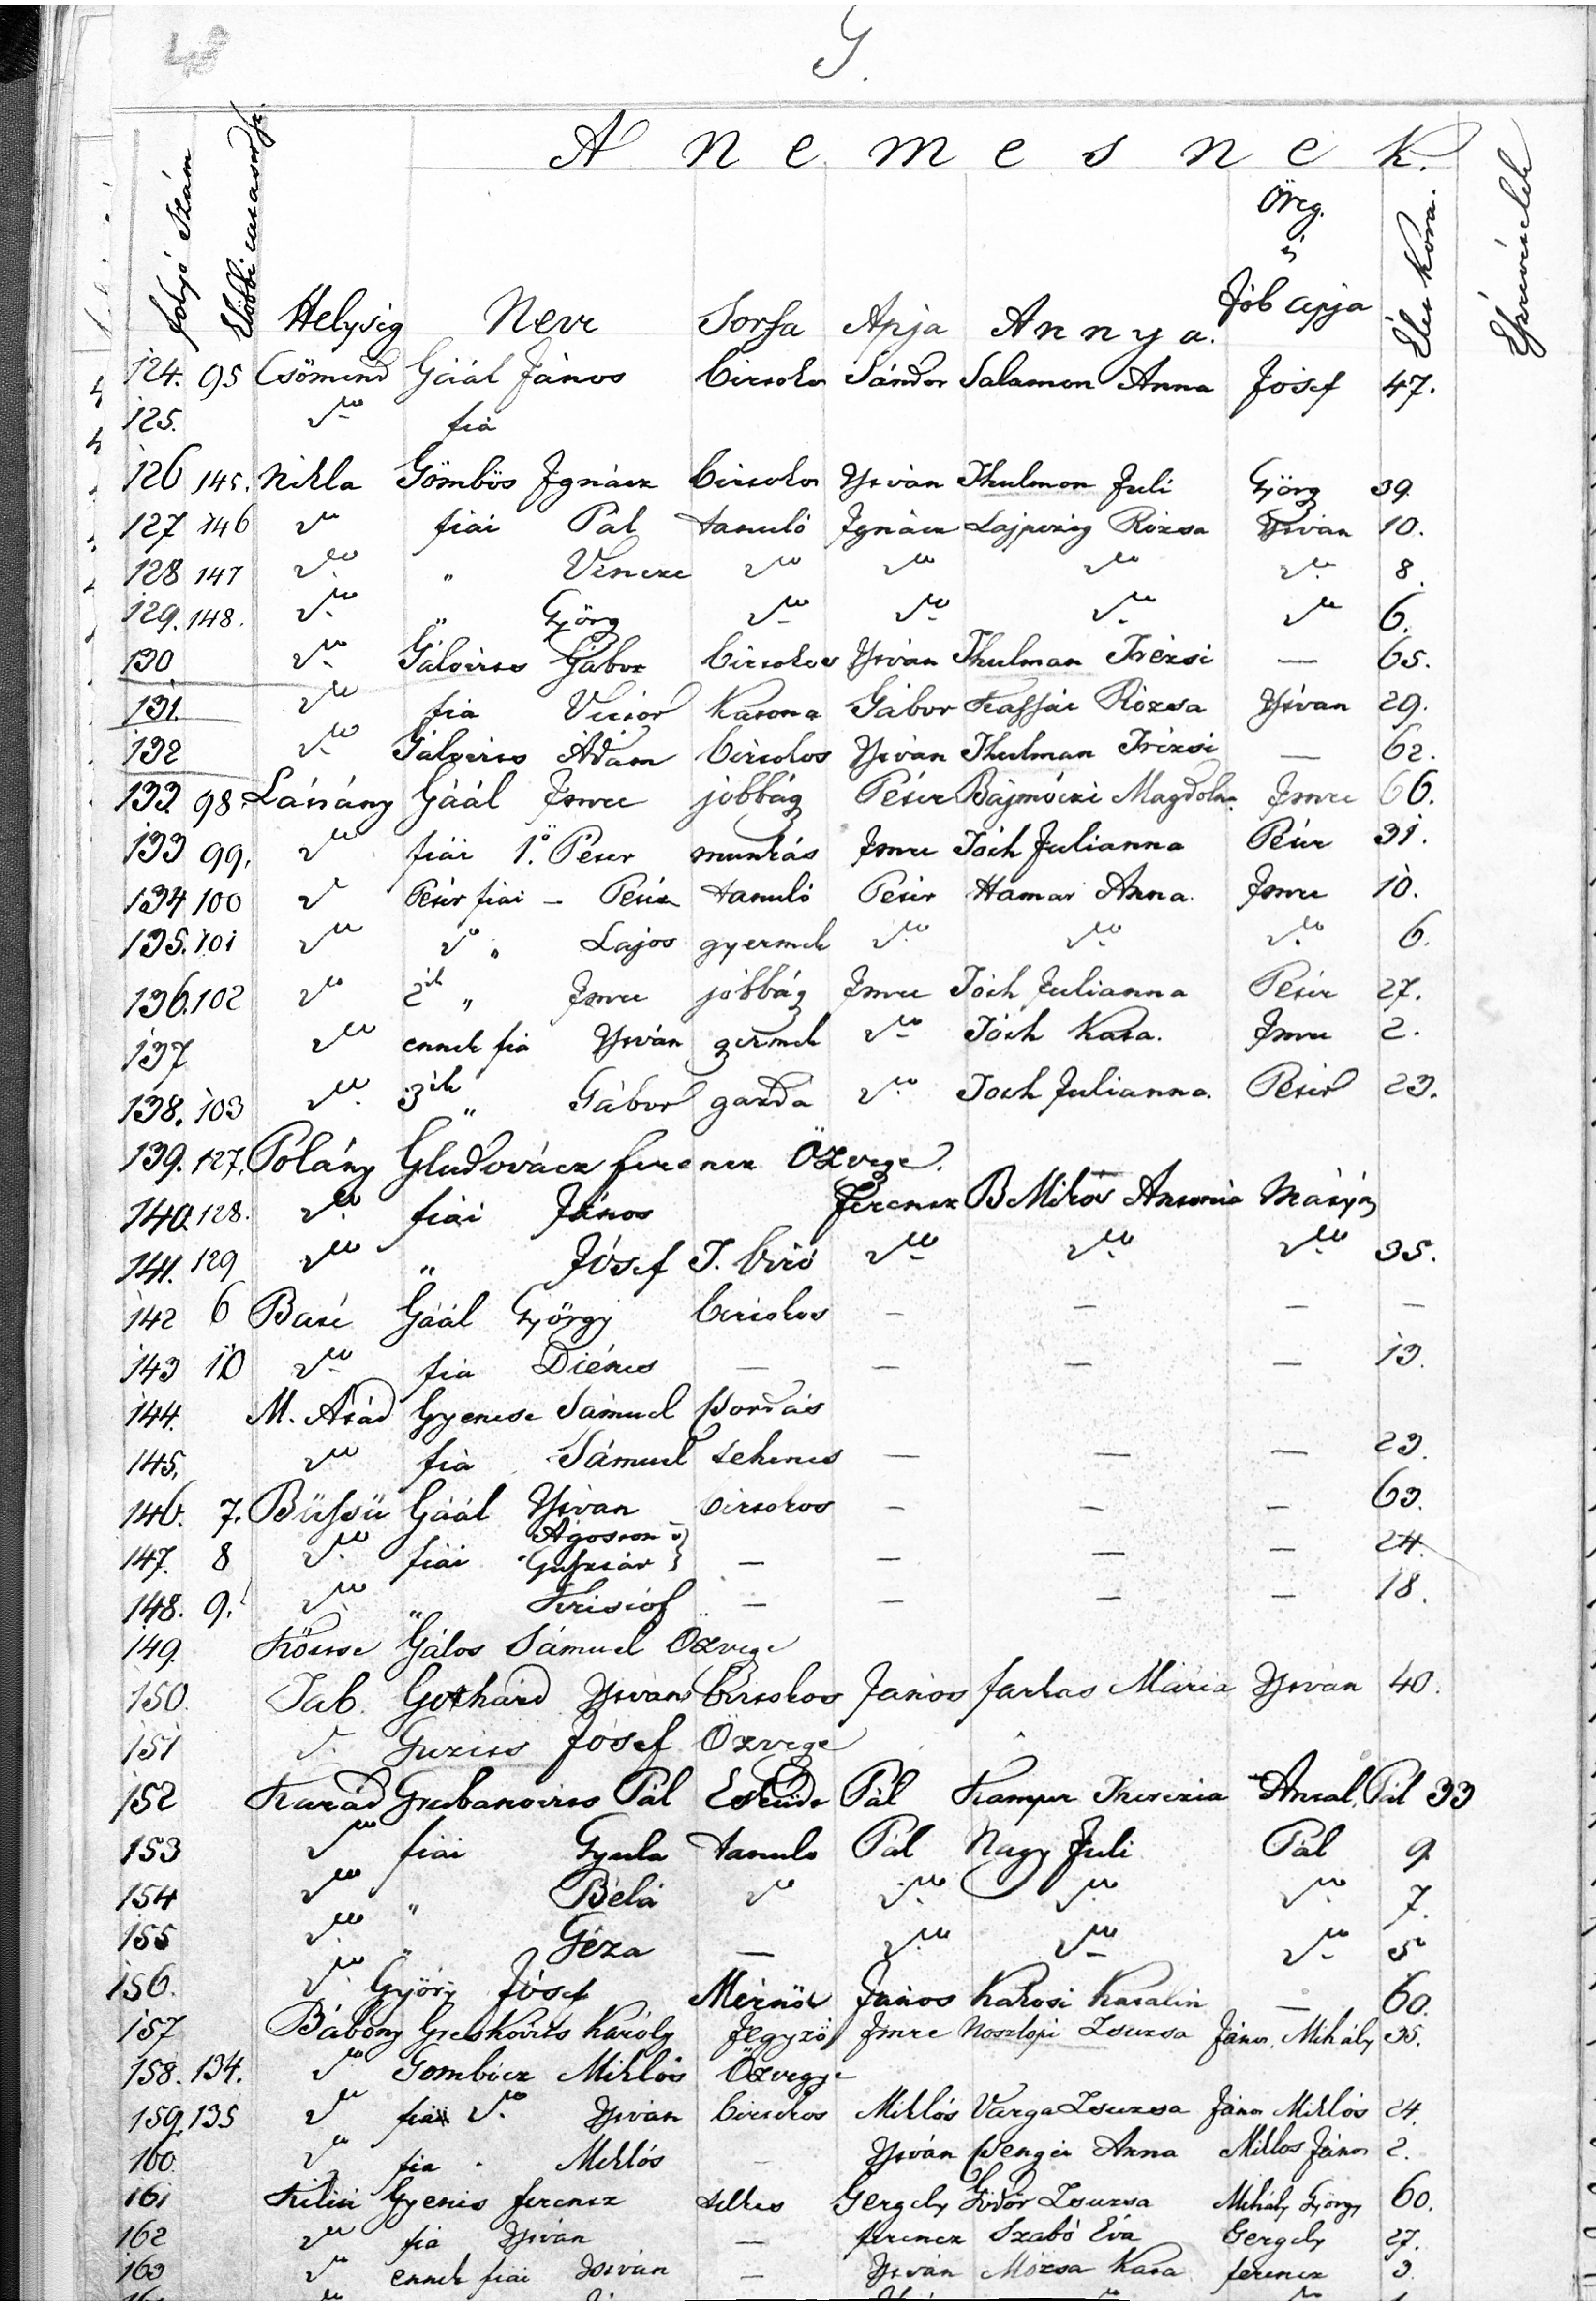 48
G.
A nemesnek.
folyó szám Helység Neve Sorsa Apja Annya. Öreg és Jób apja Élet kora. Észrevételek
124. 95 Csömend Gáál János birtokos Sándor Salamon Anna Jósef 47.
125. dto fia
126 145. Nikla Gömbös Ignácz birtokos István Thulmon Juli Györg 39.
127 146 dto fiai Pál tanuló Ignácz Lajpczig Rózsa István 10.
128 147 dto " Vincze dto dto dto dto 8.
129. 148. dto " Györg dto dto dto dto 6.
130 dto Gálovits Gábor birtokos István Thulman Trézsi — 65.
131. dto fia Victor katona Gábor Kassai Rózsa István 29.
132 dto Gálovits Ádám birtokos István Thulman Trézsi — 62.
133. 98. Látrány Gáál Imre jobbág Péter Bajmóczi Magdolna Imre 66.
133 99. dto fiai 1ő. Péter munkás Imre Tóth Julianna Péter 31.
134 100 dto Péter fiai — Péter tanuló Péter Hamar Anna. Imre 10.
135. 101 dto dto " Lajos gyermek dto dto dto 6.
136. 102 dto 2ik " Imre jobbág Imre Tóth Julianna Péter 27.
137 dto ennek fia István germek dto Tóth Kata. Imre 2.
138. 103 dto 3ik " Gábor gazda dto Toth Julianna. Péter 23.
139. 127. Polány Gludovácz ferencz Özvege.
140. 128. dto fiai János Ferencz B Mikós Antonia Mátyás
141. 129 dto " Jósef T. biró dto dto dto 35.
142 6 Baté Gáál György birtokos — — — —
143 10 dto fia Diénes — — — — 13.
144. M. Atád Gyenese Sámuel Kordás
145. dto fia Sámuel tehenes — — — 23.
146. 7. Büssü Gáál István birtokos — — — 63.
147. 8 dto fiai Ágoston és Gusztáv } — — — — 24.
148. 9. dto " Kristóf — — — — 18.
149. Kötcse Gálos Sámuel Özvege
150. Tab. Gothárd István birtokos János farkas Mária István 40.
151 d. Guzits Jósef Özvege
152 Karád Grubanovits Pál Esküdt Pál Kampur Therezia Antal, Pál 33
153 dto fiai Gyula tanuló Pál Nagy Juli Pál 9
154 dto " Béla dto dto dto dto 7.
155 dto " Géza — dto dto dto 5
156. dto Györy Jósef Mérnök János Kakosi Katalin — 60.
157 Bábony Greskovits Károly Jegyző Imre Noszlopi Zsuzsa János, Mihály 35.
158. 134. dto Gombócz Miklós Özvegye
159. 135 dto fiai dto István birtokos Miklós Varga Zsuzsa János Miklós 24.
160. dto fia Miklós — István Wenger Anna Miklos János 2.
161 Kiliti Gyenis ferencz telkes Gergely Fodor Zsuzsa Mihály György 60.
162 dto fia István — ferencz Szabó Éva Gergely 27.
163 dto ennek fiai István — István Mózsa Kata ferencz 3